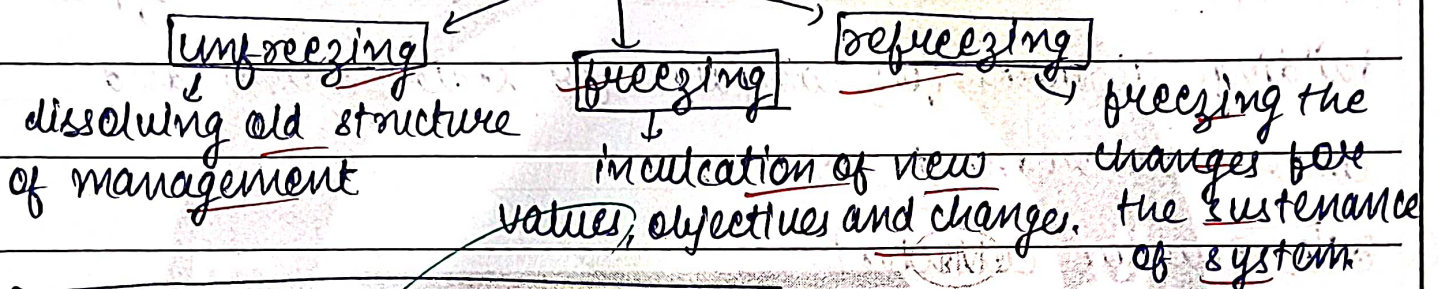 unfreezing
dissolving old structure
of management
freezing
inculcation of new
values, objectives and changes.
refreezing
freezing the
changes for
the sustenance
of system